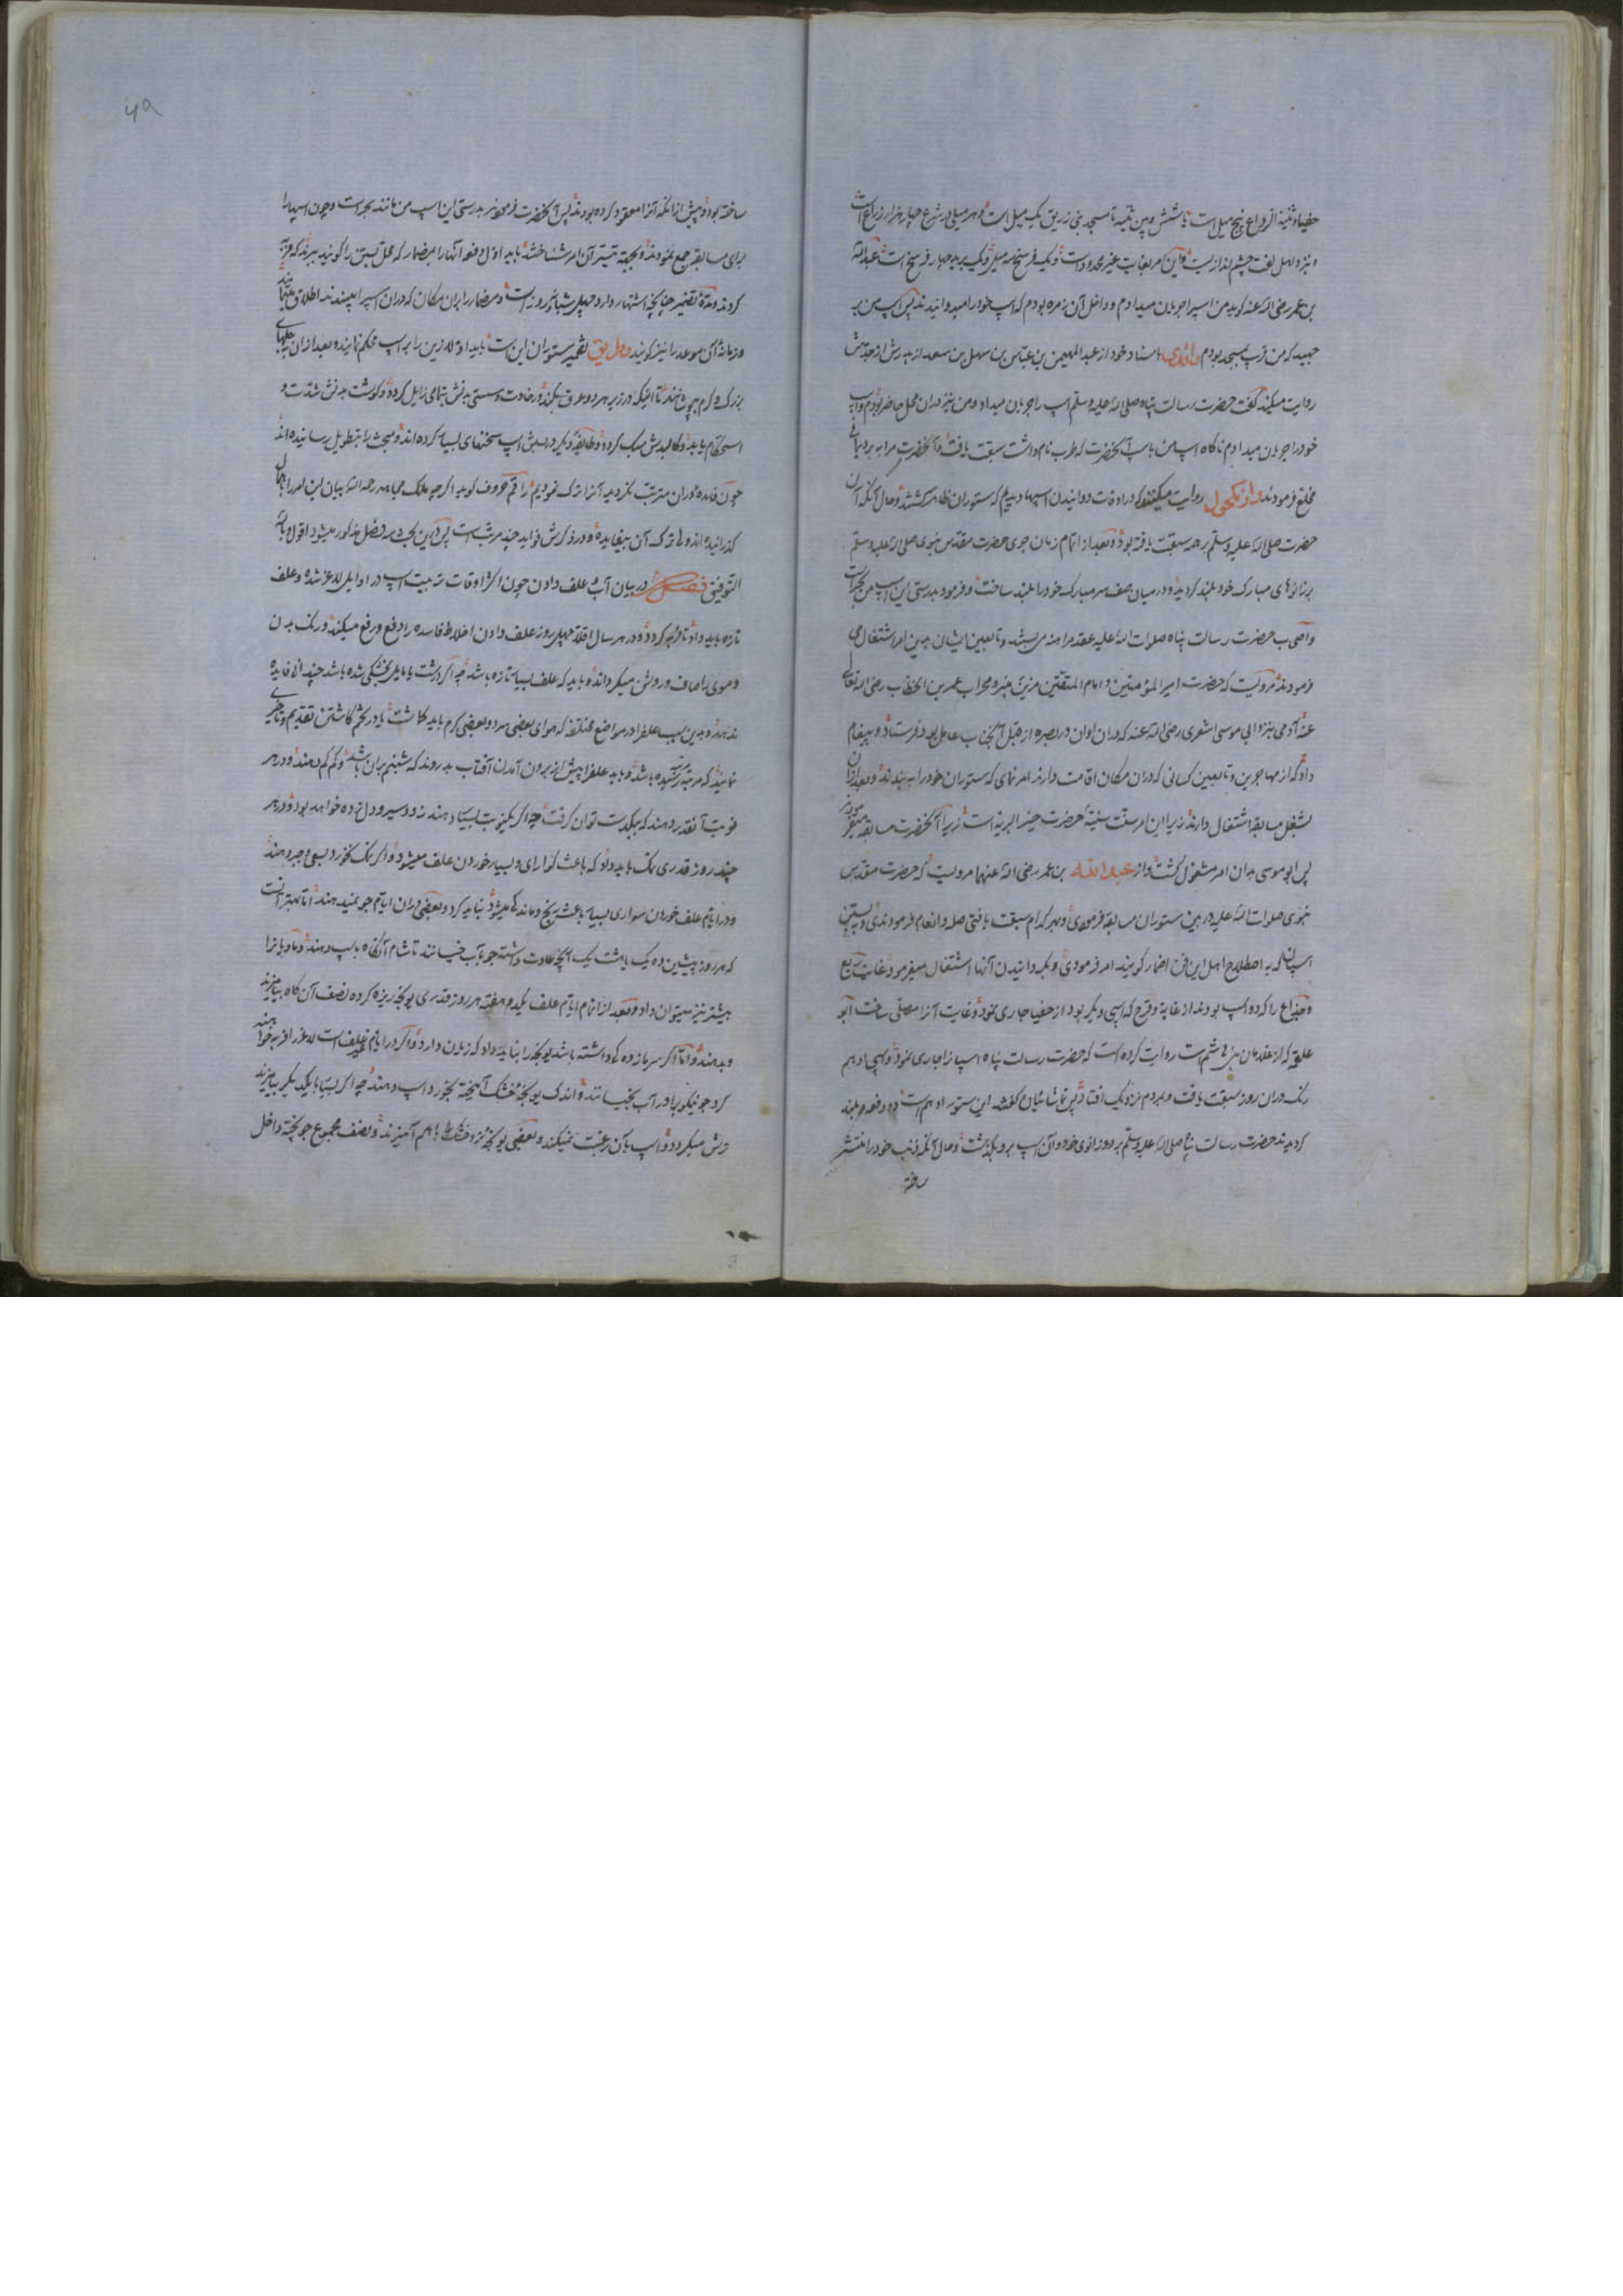 حفیاء و ثنیة الوداع پنج میل است یا شش و بین ثنیه تا مسجد بنی زریق یک میل است و هر میلی در شرع چهار هزار ذراع است
و نزد اهل لغت چشم اندازیست و این امر بغایت غیر محدود است و یک فرسخ سه میل و یک برید چهار فرسخ است عبدالله
بن عمر رضی الله عنه کوید من اسپ را جریان میدادم و داخل آن زمره بودم که اسپ خود را میدوانیدند پس اسپ من بر
جهید که من قریب مسجد بودم واقدی باسناد خود از عبد المهیمن بن عباس بن سهل بن سعد از پدرش از جدش
روایت میکند گفت حضرت رسالت پناه صلی الله علیه وسلم اسپ را جریان میداد و من نیز در ان محل حاضر بودم و اسپ
خود را جریان میدادم ناکاه اسپ من با سپ آنحضرت که ظرب نام داشت سبقت یافت و آنحضرت مرا به برد یمانی
مخلع فرمودند و از مکحول روایت میکنند که در اوقات دوانیدن اسپها دیدیم که ستوران ظاهر کشتند و حال آنکه اسپ آن
حضرت صلی الله علیه وسلم بر همه سبقت یافته بود و بعد از اتمام زمان جری حضرت مقدس نبوی صلی الله علیه وسلم
بزانوهای مبارک خود بلند کردیده و در میان صف سر مبارک خود را بلند ساخت و فرمود بدرستی این اسپ من بحر است
و اصحاب حضرت رسالت پناه صلوات الله علیه عقد مراهنه می بستند و تابعین ایشان بدین امر اشتغال می
فرمودند مرویست که حضرت امیر المؤمنین و امام المتقین مزین منبر و محراب عمر بن الخطاب رضی الله تعالی
عنه آدمی بنزد ابی موسی اشعری رضی الله عنه که در ان اوان در بصره از قبل آنجناب عامل بود فرستاد و پیغام
داد که از مهاجرین و تابعین کسانی که در ان مکان اقامت دارند امر نمای که ستوران خود را به بندند و بعد ازان
بشغل مسابقه اشتغال دارند زیرا این امر سنت سنیه حضرت خیر البریه است زیرا آنحضرت مسابقه میفرمودند
پس ابو موسی بدان امر مشغول کشت و از عبدالله بن عمر رضی الله عنهما مرویست که حضرت مقدس
نبوی صلوات الله علیه در بین ستوران مسابقه فرمودی و بهر کدام سبقت یافتی صله و انعام فرمودندی و بستن
اسپان که به اصطلاح اهل این فن اضمار کویند امر فرمودی و بدوانیدن آنها اشتغال میفرمود غایت
و جذاع را که دو اسپ بودند از غایة و قرح که اسپی دیکر بود از حفیا جاری نمود و غایت آنرا مصلی ساخت ابو
علقمه که از غلامان بنی هاشم است روایت کرده است که حضرت رسالت پناه اسپانرا جاری نمود و اسپی ادهم
رنک در ان روز سبقت یافت و بمردم نزدیک افتاد پس تماشائیان کفتند این ستور ادهم است دو دفعه و بلند
کردیدند حضرت رسالت پناه صلی الله علیه وسلم بر دو زانوی خود و آن اسپ برو بکذشت و حال آنکه ذنب خود را منتشر
ساخته
۴۹
ساخته بود و پیش از انکه آنرا معقود کرده بودند پس آنحضرت فرمودند بدرستی این اسپ من مانند بحر است و چون اسپها را
برای مسابقه جمع نمودند و بجهة تیسیر آن امر شناخته شد باید اول دفعه آنها را بمضمار که محل بستن را کویند ببرند که فربه
کردند و مدة تضمیر چنانچه اشتهار دارد چهل شبانه روز است و مضمار را بران مکان که دران اسپ را بپسندند اطلاق
و زمانه آن موعد را نیز کویند و طریق تضمیر ستوران این است باید اولا زین را بر اسپ محکم نمایند و بعد ازان بجلهای
بزرک و کرم بپوشانند تا اینکه در زیر هر دو عرق بکند و رخاوت و سستی بدنش بتمامی زایل کردد و کوشت بدنش شدت و
استحکام یابد و کالبدش سبک کردد و طایفه دیکر در بستن اسپ سخنهای بسیار کرده اند و مبحث را بتطویل رسانیده اند
چون فایده دران مترتب نکردید آنرا ترک نمودیم راقم حروف کوید اکر چه ملک مجاهد رحمه الله بیان این امر را باجمال
کذرانیده اند ولی ترک آن بیفایده و در ذکرش فواید چند مرتب است پس درین بحث سه فصل مذکور میشود اقول و بالله
التوفیق فصل در بیان آب و علف دادن چون اکثر اوقات تربیت اسپ در اوایل لاغر شده و علف
تازه باید داد تا فربه کردد و در هر سال اقلا چهل روز علف دادن اخلاط فاسده را دفع و رفع میکند و رنک بدن
و موی را صاف و روشن میکرداند و باید که علف بسیار تازه باشد چه اکر درشت یا مایل بخشکی شده باشد چندان فایده
ندهد و بدین سبب علف را در مواضع مختلفه که هوای بعضی سرد و بعضی کرم باید کاشت یا در تخم کاشتن تقدیم و تاخیر
نمایند که مرتبه رسیده باشد و باید علف را پیش از برون آمدن آفتاب بدروند که شبنم بران باشد و کم کم دهند و در هر
نوبت آنقدر دهند که بیکدست توان کرفت چه اکر یکنوبت بسیار دهند زود سیر و دل زده خواهد بود و در هر
چند روز قدری نمک باید داد که باعث کوارای و بسیار خوردن علف میشود و اکر نمک نخورد بسعی و جبر دهند
و در ایام علف خوردن سواری بسیار باعث رنج و ماندکی میشود نباید کرد و بعضی دران ایام جو نمیدهند اما بهتر آنست
که هر روز پیشین ده یک یا هشت یک آنچه عادت داشته جو بآب خیسانند تا شام آنکاه باسپ دهند
بیشتر نیز میتوان داد و بعد از اتمام ایام علف یکدو هفته هر روز قدری یونجه ریزه کرده نصف آن کاه بیامیزند
و بدهند و اما اکر سرمازده کی داشته باشد یونجه را نباید داد که زیان دارد و اکر در ایام غیر علف است لاغر را فربه خواهند
کرد جو نیکو را در آب بخیسانند و اندک یونجه خشک آمیخته بخورد اسپ دهند چه اکر بسیار با یکدیکر بیامیزند
ترش میکردد و اسپ بآن رغبت نمیکند و بعضی یونجه تر و خشک را باهم آمیزند و نصف مجموع جو پخته داخل